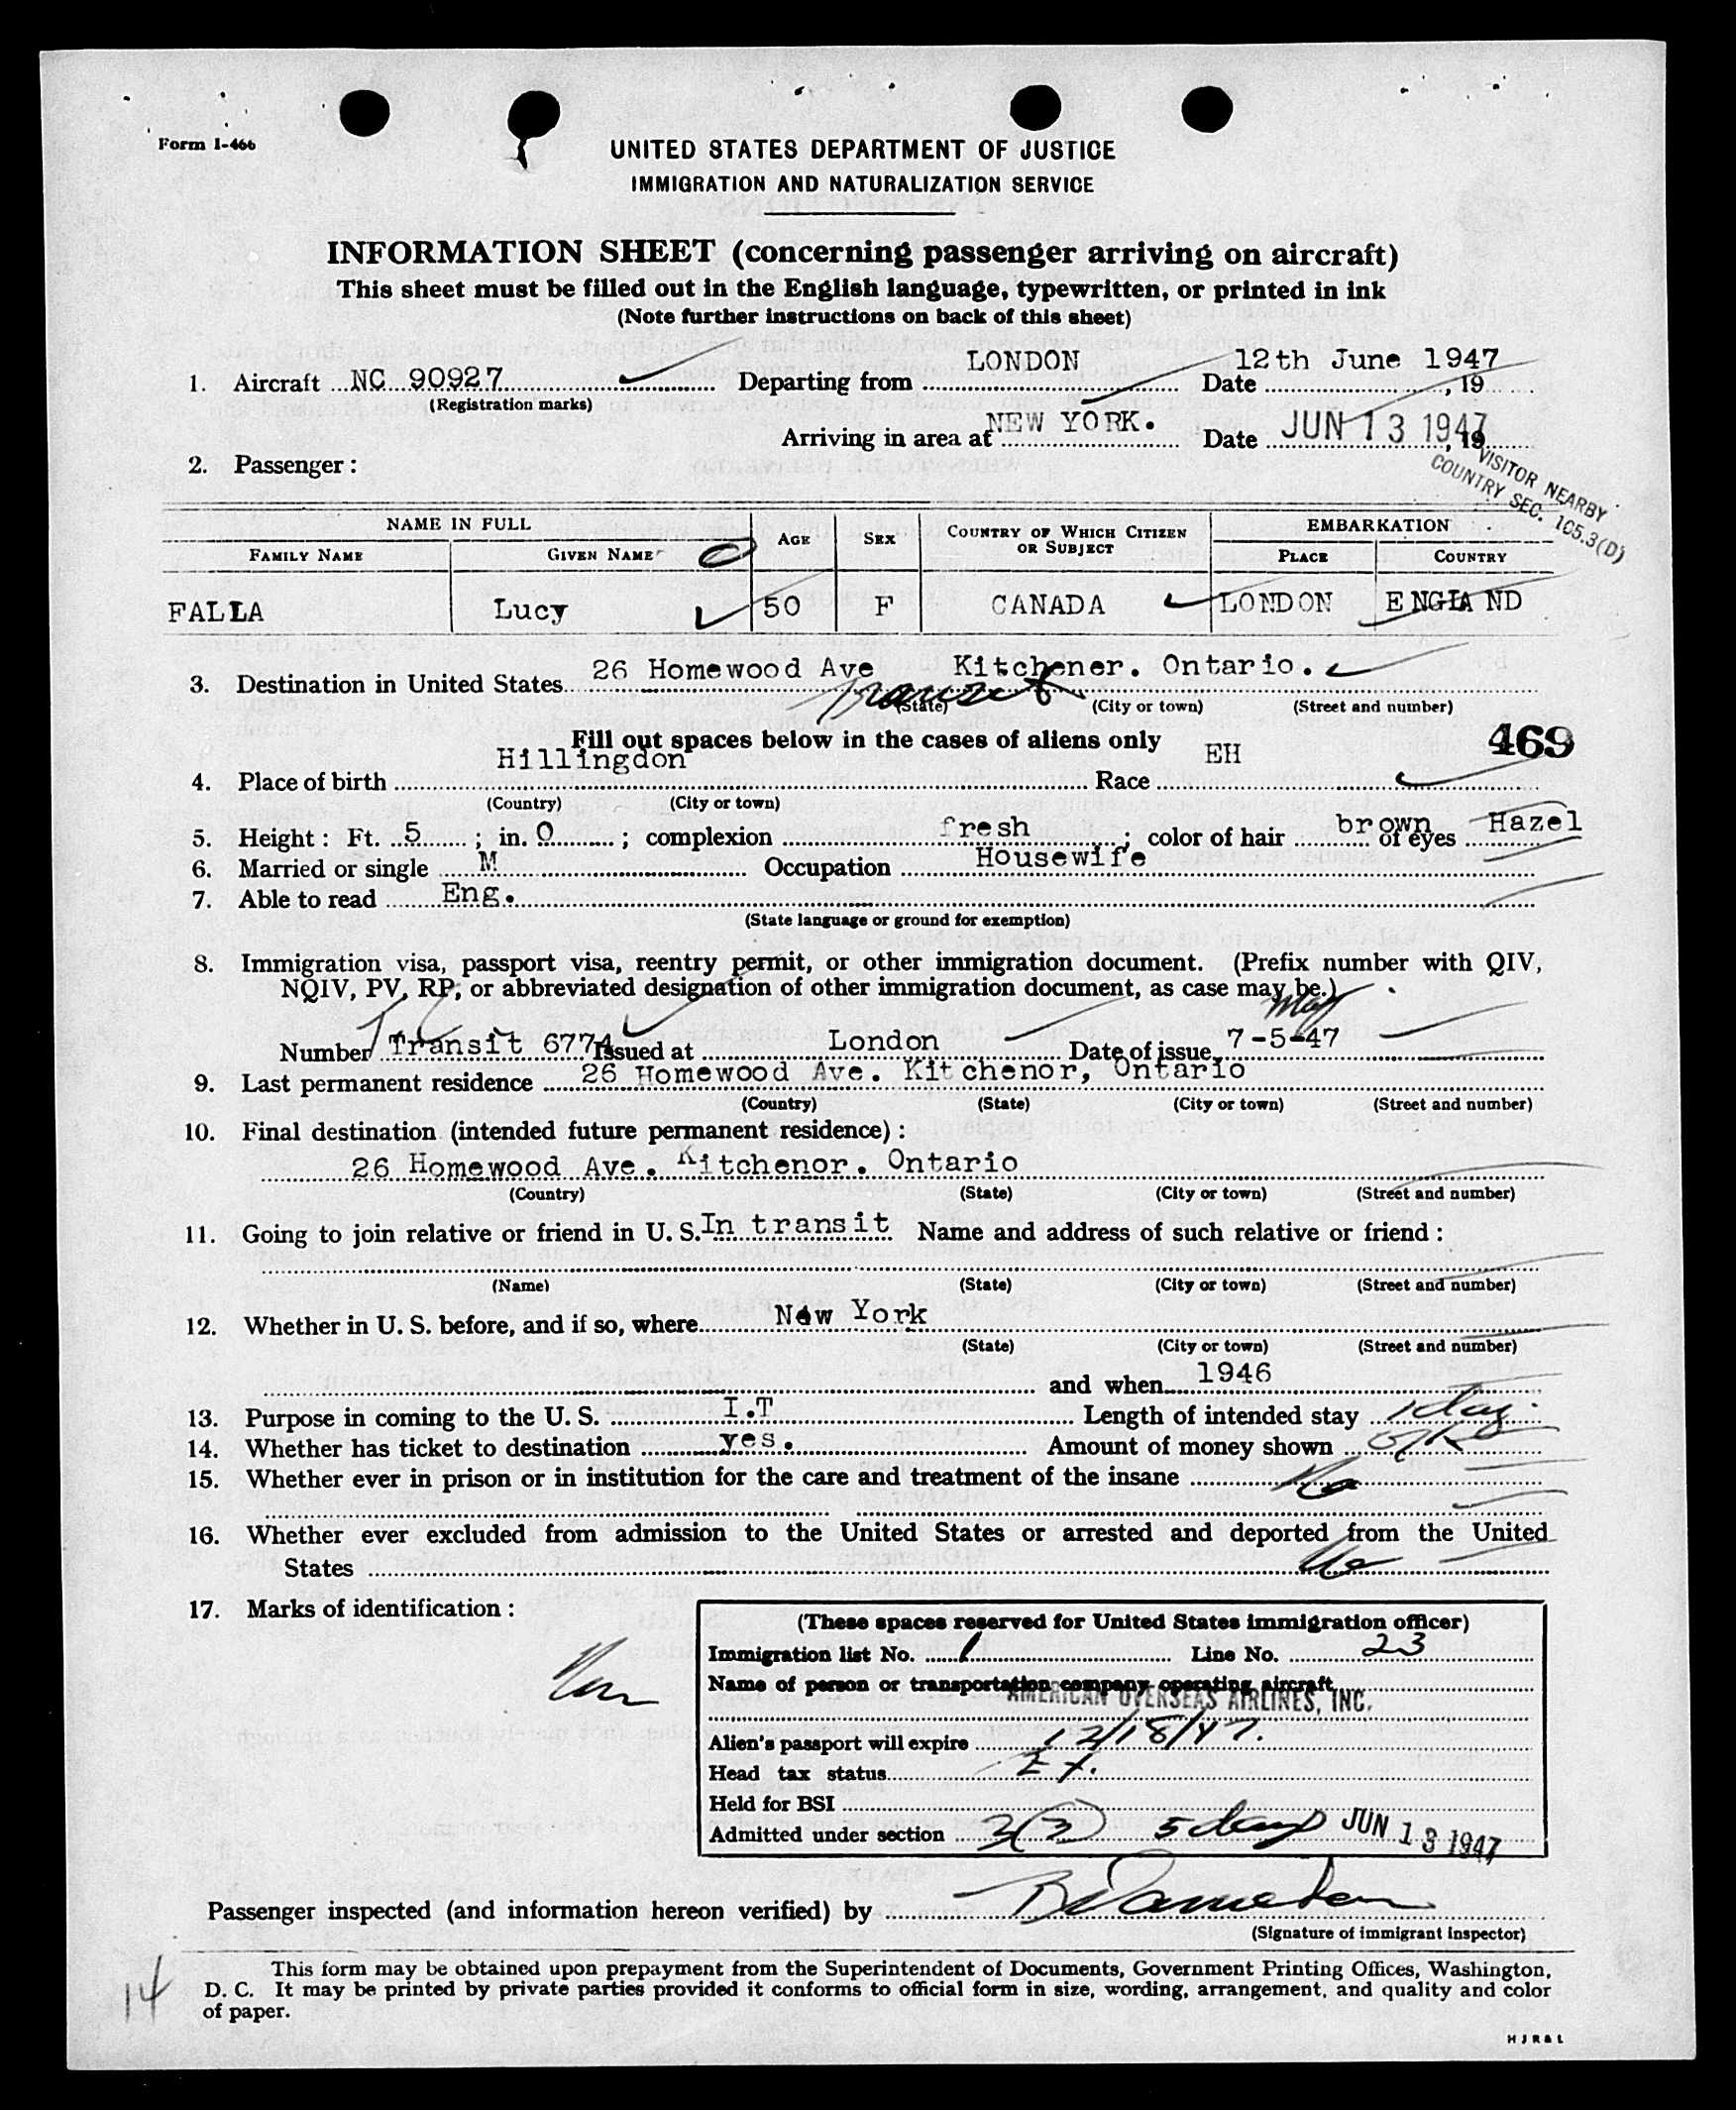 Form I-466
UNITED STATES DEPARTMENT OF JUSTICE
IMMIGRATION AND NATURALIZATION SERVICE
INFORMATION SHEET (concerning passenger arriving on aircraft)
This sheet must be filled out in the English language, typewritten, or printed in ink
(Note further instructions on back of this sheet)
1. Aircraft NC 90927 Departing from LONDON Date 12th June 1947, 19
(Registration marks)
Arriving in area at NEW YORK. Date JUN 13 1947, 19
2. Passenger:
VISITOR NEARBY
COUNTRY SEC. 105.3(D)
NAME IN FULL AGE SEX COUNTRY OF WHICH CITIZEN OR SUBJECT EMBARKATION
FAMILY NAME GIVEN NAME PLACE COUNTRY
FALLA Lucy 50 F CANADA LONDON ENGLAND
3. Destination in United States 26 Homewood Ave Kitchener. Ontario.
transit
(State) (City or town) (Street and number)
Fill out spaces below in the cases of aliens only
469
4. Place of birth Hillingdon Race EH
(Country) (City or town)
5. Height: Ft. 5; in. 0; complexion fresh; color of hair brown of eyes Hazel
6. Married or single M Occupation Housewife
7. Able to read Eng.
(State language or ground for exemption)
8. Immigration visa, passport visa, reentry permit, or other immigration document. (Prefix number with QIV,
NQIV, PV, RP, or abbreviated designation of other immigration document, as case may be.)
May
Number Transit 6774 Issued at London Date of issue, 7-5-47
9. Last permanent residence 26 Homewood Ave. Kitchenor, Ontario
(Country) (State) (City or town) (Street and number)
10. Final destination (intended future permanent residence):
26 Homewood Ave. Kitchenor. Ontario
(Country) (State) (City or town) (Street and number)
11. Going to join relative or friend in U. S. In transit Name and address of such relative or friend:
(Name) (State) (City or town) (Street and number)
12. Whether in U. S. before, and if so, where New York
(State) (City or town) (Street and number)
and when 1946
13. Purpose in coming to the U. S. I.T Length of intended stay 1 day.
14. Whether has ticket to destination yes. Amount of money shown OK
15. Whether ever in prison or in institution for the care and treatment of the insane No
16. Whether ever excluded from admission to the United States or arrested and deported from the United
States No
17. Marks of identification:
(These spaces reserved for United States immigration officer)
Immigration list No. 1 Line No. 23
Name of person or transportation company operating aircraft
AMERICAN OVERSEAS AIRLINES, INC.
Alien's passport will expire 12/18/47.
Head tax status Ex.
Held for BSI
Admitted under section 3(3) 5 days JUN 13 1947
Passenger inspected (and information hereon verified) by
(Signature of immigrant inspector)
This form may be obtained upon prepayment from the Superintendent of Documents, Government Printing Offices, Washington,
D. C. It may be printed by private parties provided it conforms to official form in size, wording, arrangement, and quality and color
of paper.
14
HJR&L